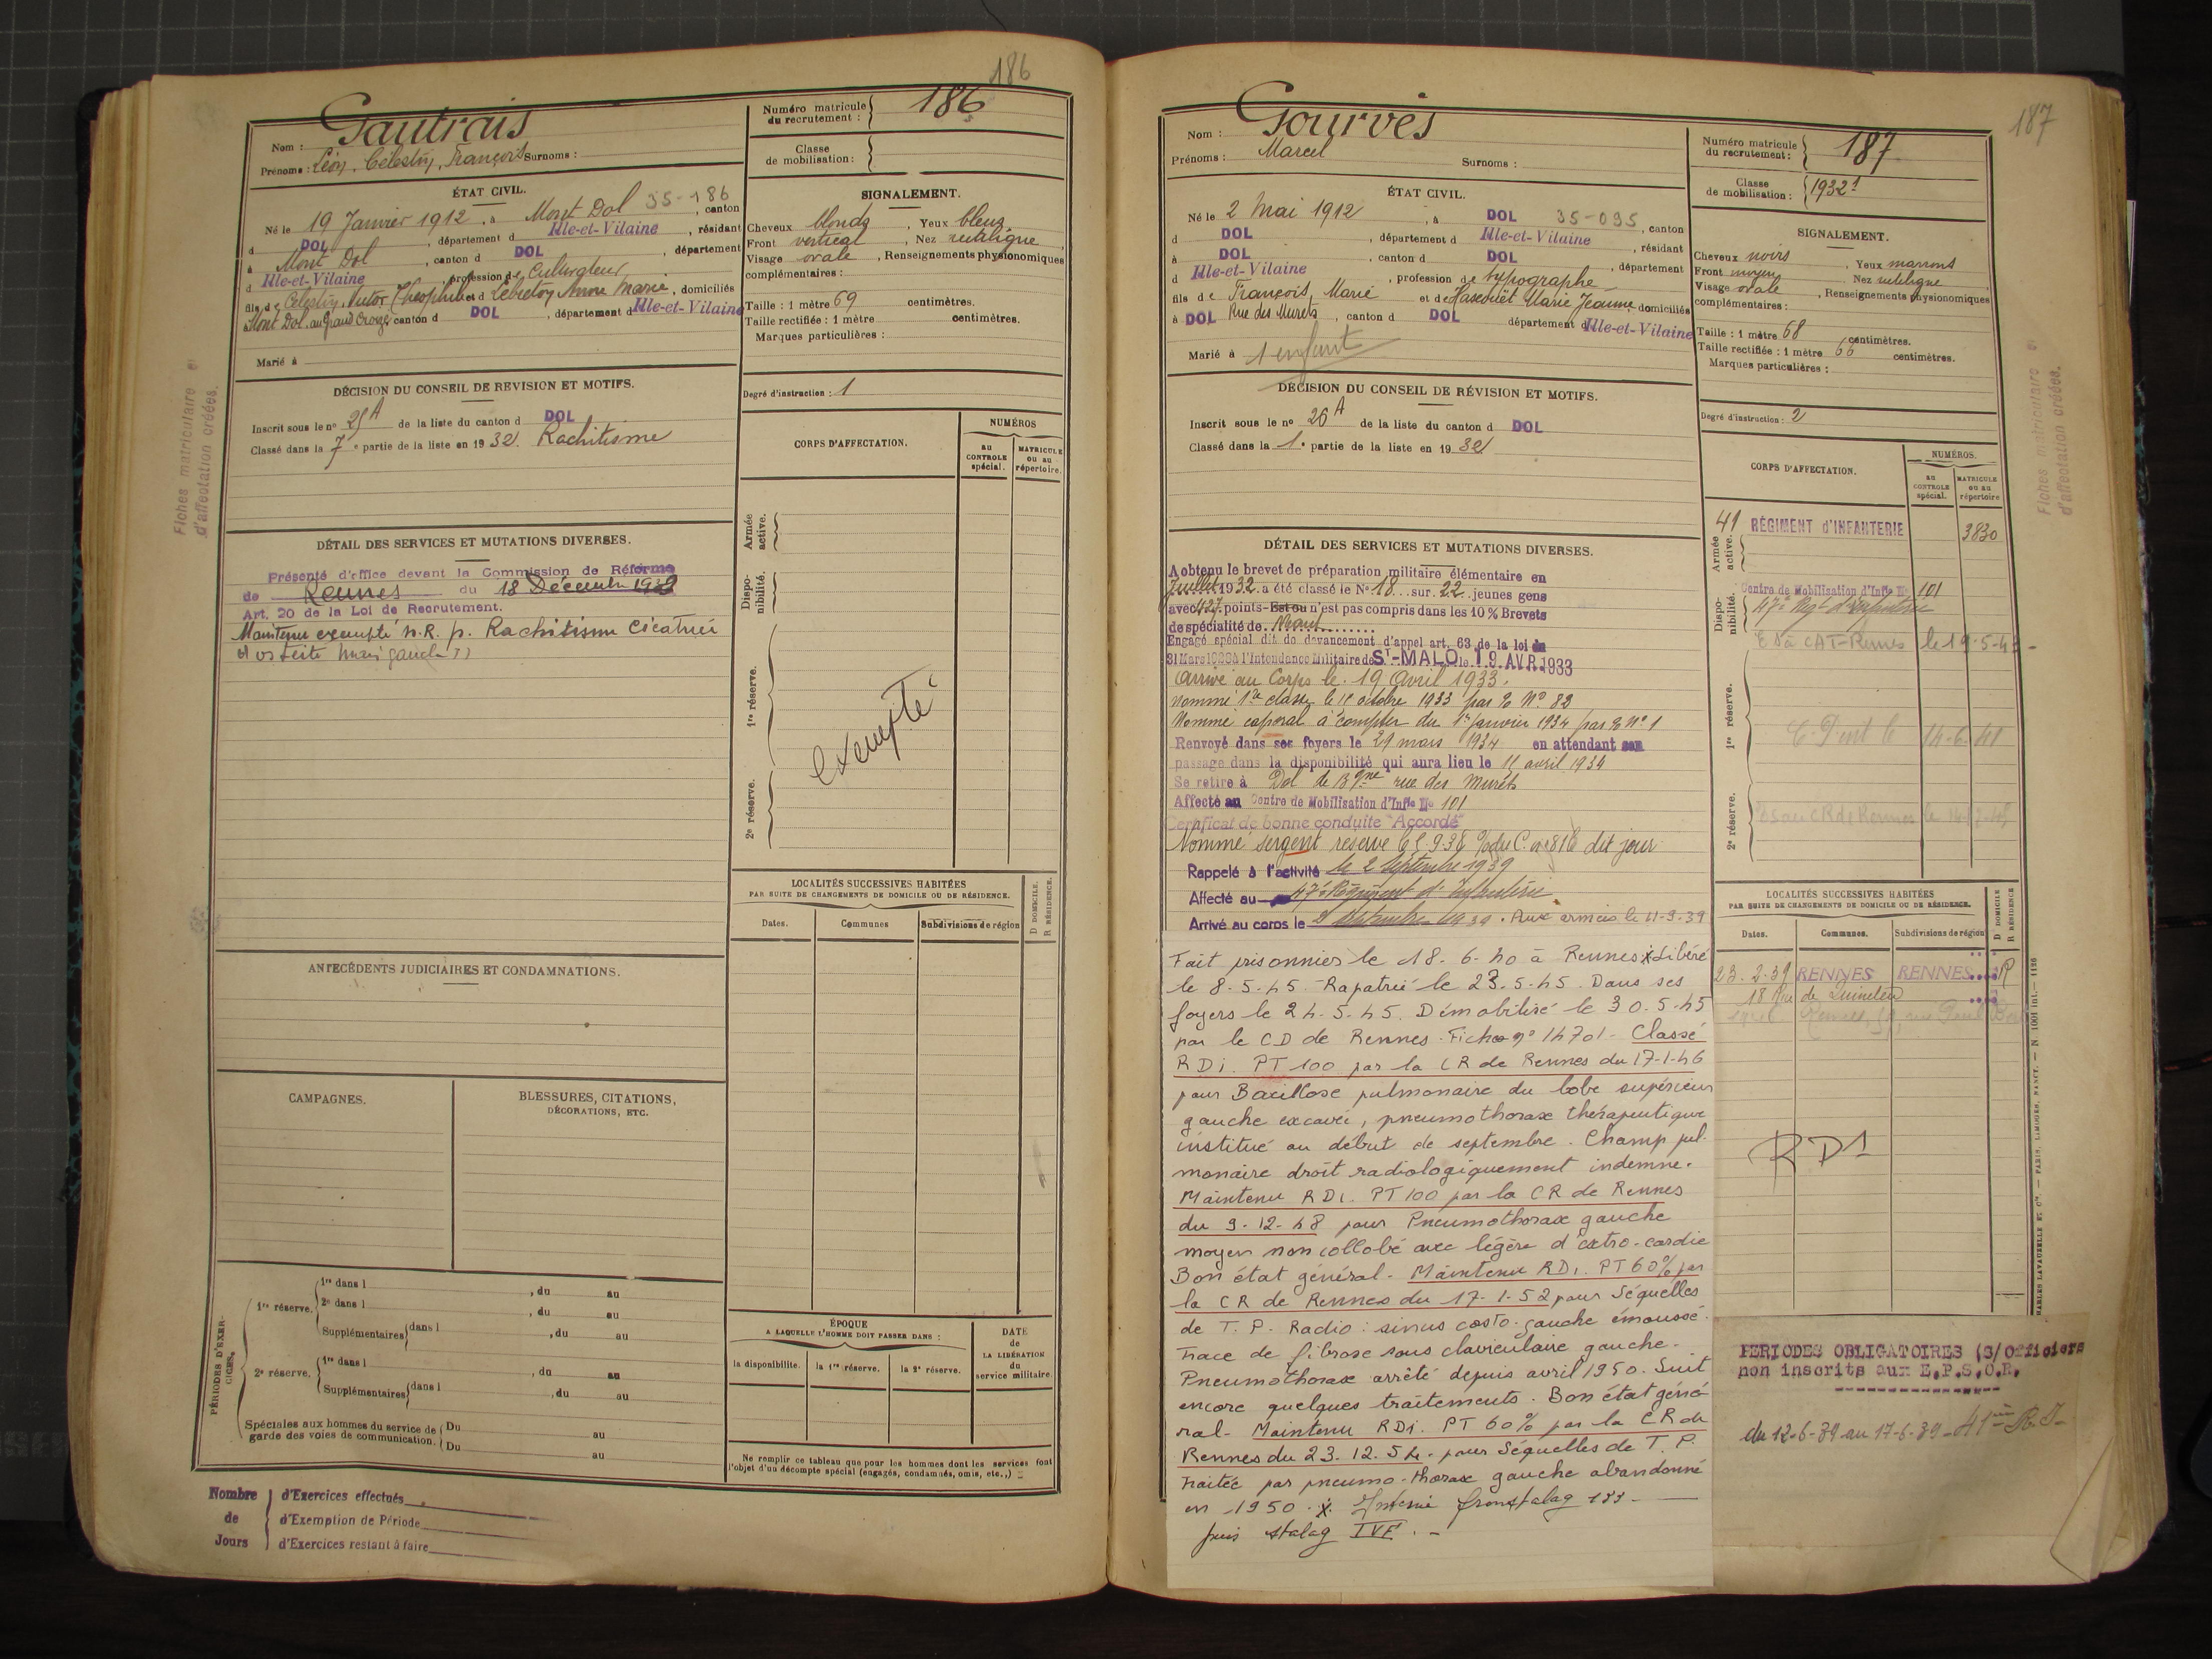 186
Nom : Gautrais
Prénoms : Léon, Célestin, François Surnoms :
Numéro matricule du recrutement : 186
Classe de mobilisation :
ÉTAT CIVIL.
Né le 19 Janvier 1912, à Mont Dol 35-186, canton
d DOL, département d Ille-et-Vilaine, résidant
à Mont Dol, canton d DOL, département
d Ille-et-Vilaine, profession de Cultivateur
fils de Célestin, Victor, Théophile et d Lebreton Anne Marie, domiciliés
Mont Dol, au Grand canton d DOL, département d Ille-et-Vilaine
Marié à
SIGNALEMENT.
Cheveux blonds, Yeux bleus,
Front vertical, Nez rectiligne,
Visage ovale, Renseignements physionomiques
complémentaires :
Taille : 1 mètre 69 centimètres.
Taille rectifiée : 1 mètre centimètres.
Marques particulières :
Degré d'instruction : 1
DÉCISION DU CONSEIL DE REVISION ET MOTIFS.
Inscrit sous le nº 25 A de la liste du canton d DOL
Classé dans la 7e partie de la liste en 1932. Rachitisme
DÉTAIL DES SERVICES ET MUTATIONS DIVERSES.
Présenté d'office devant la Commission de Réforme
de Rennes du 18 Décembre 1939
Art. 20 de la Loi de Recrutement.
Maintenu exempté n. R. p. Rachitisme
CORPS D'AFFECTATION.
NUMÉROS
au CONTROLE spécial.
MATRICULE ou au répertoire.
Armée active.
Disponibilité.
1re réserve.
exempté
2e réserve.
LOCALITÉS SUCCESSIVES HABITÉES
PAR SUITE DE CHANGEMENTS DE DOMICILE OU DE RÉSIDENCE.
Dates.
Communes
Subdivisions de région
D DOMICILE.
R RÉSIDENCE.
ANTÉCÉDENTS JUDICIAIRES ET CONDAMNATIONS.
CAMPAGNES.
BLESSURES, CITATIONS,
DÉCORATIONS, ETC.
PÉRIODES D'EXERCICES.
1re réserve. 1re dans l , du au
2e dans l , du au
Supplémentaires dans l , du au
2e réserve. 1re dans l , du au
Supplémentaires dans l , du au
Spéciales aux hommes du service de garde des voies de communication. Du au
Du au
ÉPOQUE
A LAQUELLE L'HOMME DOIT PASSER DANS :
la disponibilité.
la 1re réserve.
la 2e réserve.
DATE de LA LIBÉRATION du service militaire.
Ne remplir ce tableau que pour les hommes dont les services font
l'objet d'un décompte spécial (engagés, condamnés, omis, etc.,)
Nombre de Jours
d'Exercices effectués
d'Exemption de Période
d'Exercices restant à faire
Fiches matriculaire e
d'affectation créées.
187
Nom : Gourvès
Prénoms : Marcel Surnoms :
Numéro matricule du recrutement : 187
Classe de mobilisation : 1932
ÉTAT CIVIL.
Né le 2 Mai 1912, à DOL 35-095, canton
d DOL, département d Ille-et-Vilaine, résidant
à DOL, canton d DOL, département
d Ille-et-Vilaine, profession de typographe
fils de François, Marie et de Marie Jeanne, domiciliés
à DOL Rue des Murets, canton d DOL département d Ille-et-Vilaine
Marié à 1 enfant
SIGNALEMENT.
Cheveux noirs, Yeux marrons
Front moyen, Nez rectiligne,
Visage ovale, Renseignements physionomiques
complémentaires :
Taille : 1 mètre 68 centimètres.
Taille rectifiée : 1 mètre 66 centimètres.
Marques particulières :
Degré d'instruction : 2
DÉCISION DU CONSEIL DE RÉVISION ET MOTIFS.
Inscrit sous le nº 26 A de la liste du canton d DOL
Classé dans la 1e partie de la liste en 1932
DÉTAIL DES SERVICES ET MUTATIONS DIVERSES.
A obtenu le brevet de préparation militaire élémentaire en
Juillet 1932 a été classé le Nº 18 sur 22 jeunes gens
avec 427 points - Est ou n'est pas compris dans les 10 % Brevets
de spécialité de Néant
Engagé spécial dit de devancement d'appel art. 63 de la loi du
31 Mars 1928 à l'Intendance Militaire de St-MALO le 19 AVR. 1933
Arrivé au Corps le 19 Avril 1933.
Nommé 1re classe le 11 octobre 1933 par Nº 82
Nommé caporal à compter du 1er Janvier 1934 par Nº 1
Renvoyé dans ses foyers le 29 mars 1934 en attendant son
passage dans la disponibilité qui aura lieu le 11 avril 1934
Se retire à Dol de Bgne rue des Murets
Affecté au Centre de Mobilisation d'Infie Nº 101
Certificat de bonne conduite "Accordé"
Nommé sergent réserve dit jour
Rappelé à l'activité le 2 Septembre 1939
Affecté au 47e Régiment d'Infanterie
Arrivé au corps le 2 Septembre 1939. Aux armées le 11-9-39
Fait prisonnier le 18-6-40 à Rennes x Libéré
le 8-5-45. Rapatrié le 23-5-45. Dans ses
foyers le 24-5-45. Démobilisé le 30-5-45
par le CD de Rennes. Fiche nº 14701 - Classé
RD1. PT 100 par la CR de Rennes du 17-1-46
pour Bacillose pulmonaire du lobe supérieur
gauche excavée, pneumothorax thérapeutique
institué au début de septembre. Champ pul-
monaire droit radiologiquement indemne.
Maintenu RD1. PT 100 par la CR de Rennes
du 9-12-48 pour Pneumothorax gauche
moyen non collobé avec légère dextro-cardie
Bon état général - Maintenu RD1. PT 60% par
la CR de Rennes du 17-1-52 pour Séquelles
de T. P. Radio : sinus costo-gauche émoussé.
Trace de fibrose sous claviculaire gauche.
Pneumothorax arrêté depuis avril 1950. Suit
encore quelques traitements. Bon état géné-
ral - Maintenu RD1. PT 60% par la CR de
Rennes du 23.12.54 - pour Séquelles de T. P.
traitée par pneumo-thorax gauche abandonné
en 1950. x. Interné fronstalag 133
puis stalag IVF. -
CORPS D'AFFECTATION.
NUMÉROS.
au CONTROLE spécial.
MATRICULE ou au répertoire
Armée active. 41 RÉGIMENT D'INFANTERIE 3830
Disponibilité. Centre de Mobilisation d'Infie Nº 101
47e Rgt d'Infanterie
1re réserve.
2e réserve.
LOCALITÉS SUCCESSIVES HABITÉES
PAR SUITE DE CHANGEMENTS DE DOMICILE OU DE RÉSIDENCE.
Dates.
Communes.
Subdivisions de région
D DOMICILE
R RÉSIDENCE
23-2-39 RENNES RENNES R
18 Rue de
RD1
PERIODES OBLIGATOIRES (S/Officiers
non inscrits aux E.P.S.O.R.
du 12-6-39 au 17-6-39 - 41ème R.I.
Fiches matriculaire e
d'affectation créées.